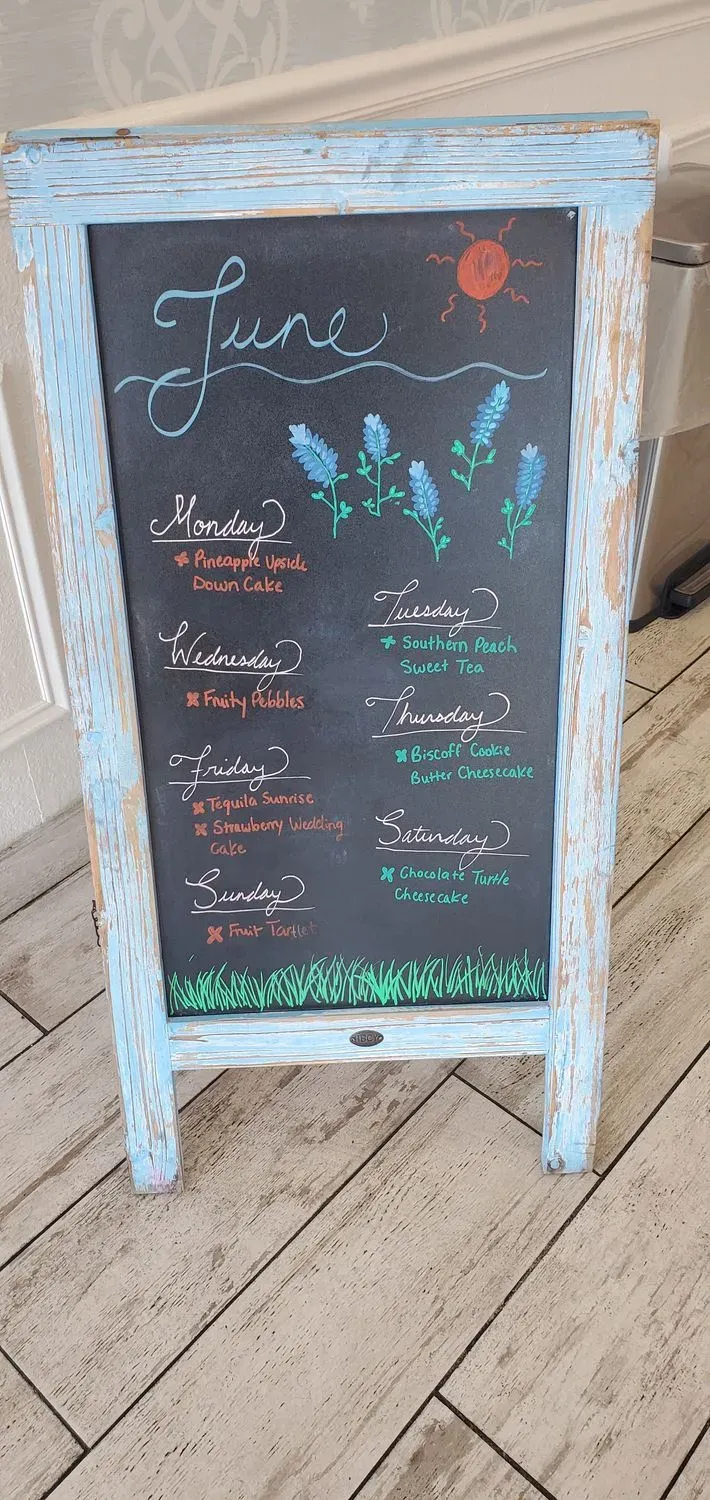 June
Monday
Pineapple Upside
Down Cake
Tuesday
Southern Peach
Sweet Tea
Wednesday
Fruity Pebbles
Thursday
Biscoff Cookie
Butter Cheesecake
Friday
Tequila Sunrise
Strawberry Wedding
Cake
Saturday
Chocolate Turtle
Cheesecake
Sunday
Fruit Tartlet